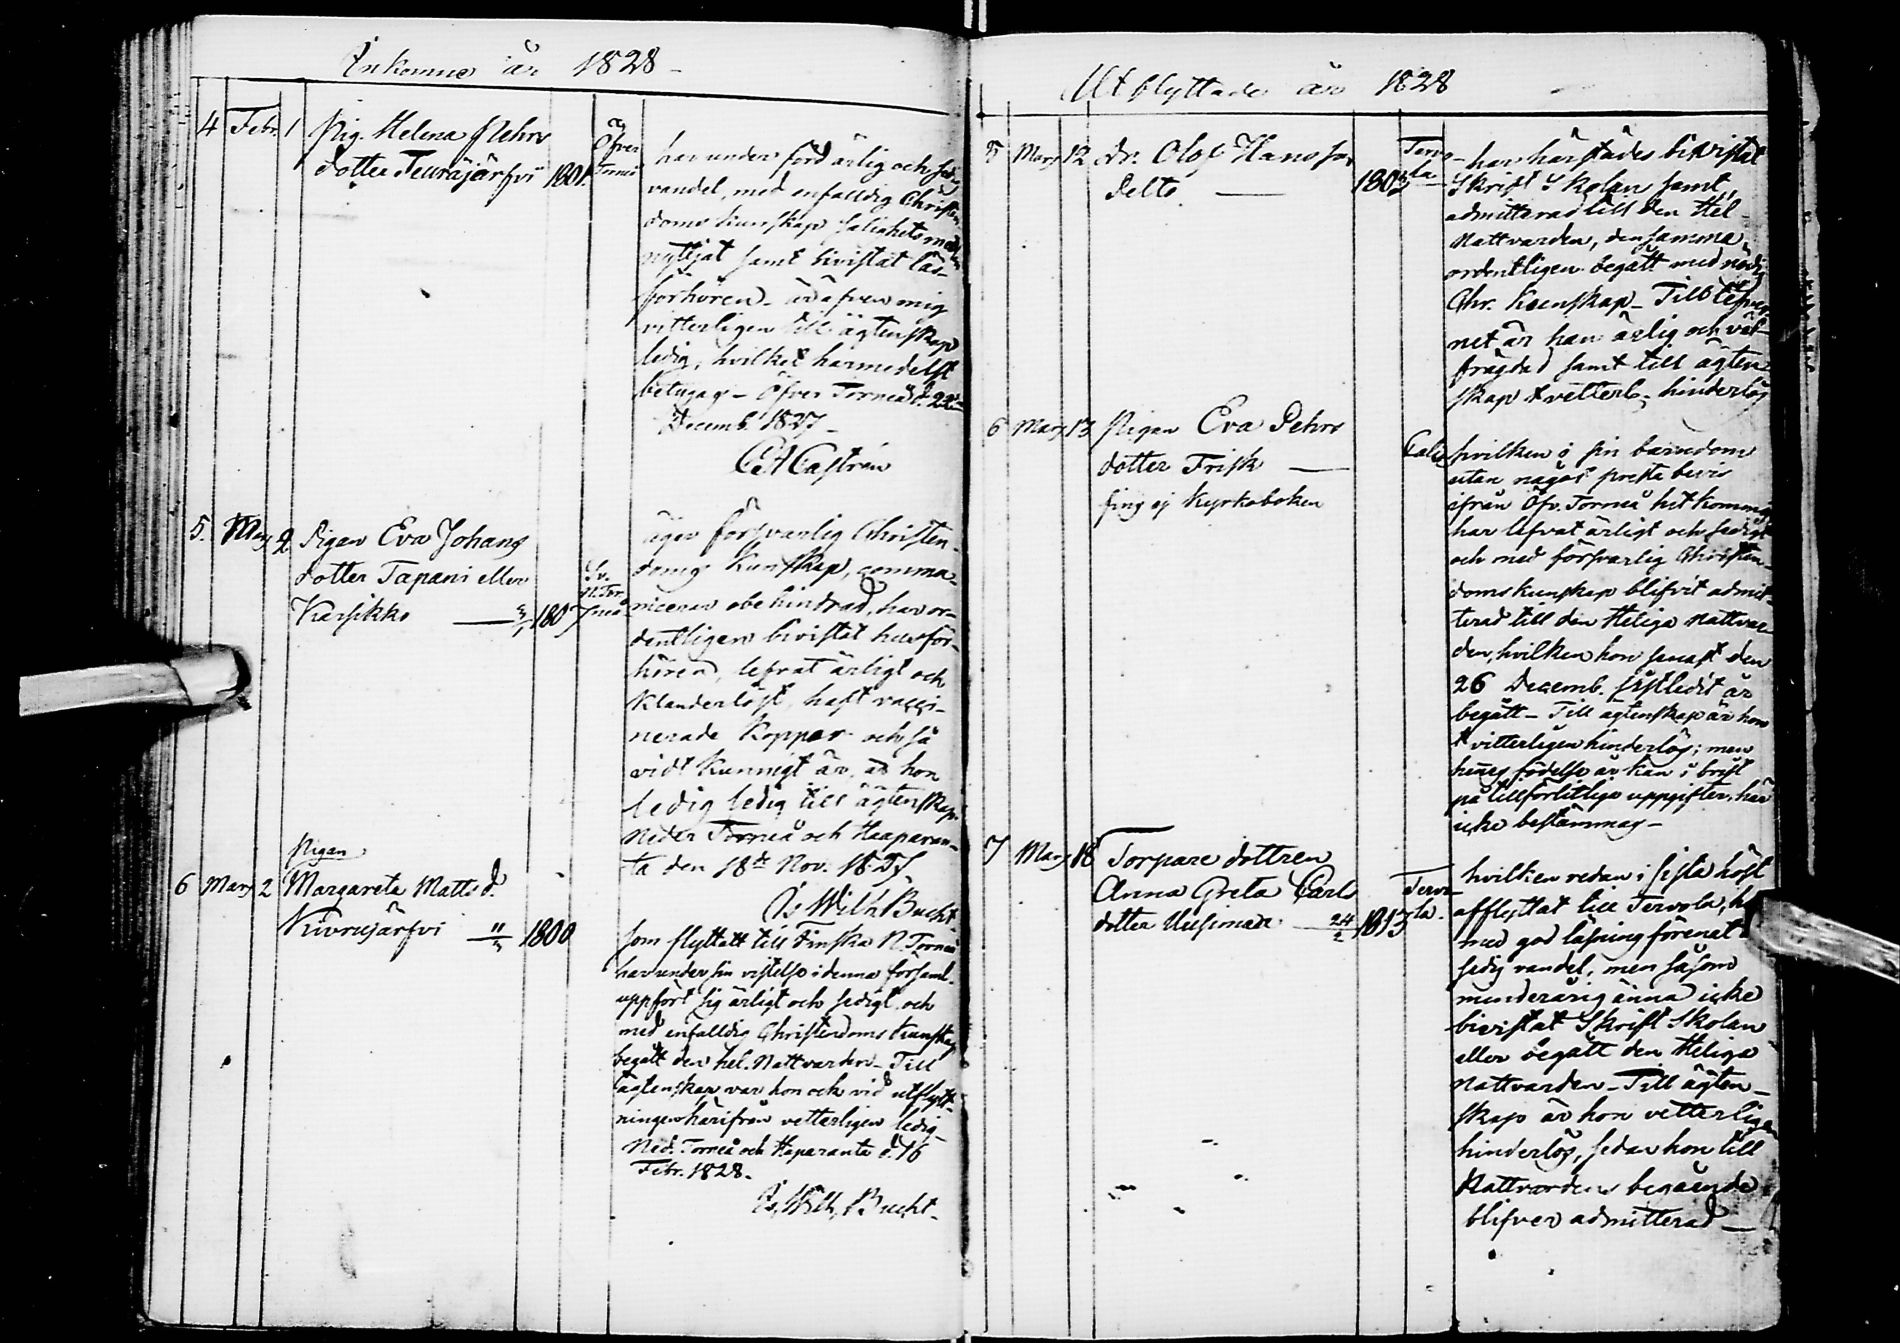 Inkomne år 1828
4 Febr. 1 Pig. Helena Pehrs
dotter Teuräjärfvi 1801.
Öfver
Torneå
har under förd ärlig och
vandel, med enfalldig Christen
doms kunskap salighetsmedlen
nyttjat samt bivistat läs-
förhören - är äfven mig
vitterligen till ägtenskap
ledig, hvilket härmedelst
betygas - Öfver Torneå d. 22
Decemb. 1827 -
Castrén
5. Mars 2 Pigan Eva Johans
dotter Tapani eller
Karsikko — 1807
Sv.
N. Tor-
neå
äger försvarlig Christen-
doms kunskap, commu-
nicerar obehindrad, har or-
dentligen bivistat husför-
hören, lefvat ärligt och
klanderlöst, haft vacci-
nerade koppor och så
vidt kunnigt är, är hon
ledig ledig till ägtenskap
Neder Torneå och Haparan-
ta den 18de Nov. 1827
Is. Wilh. Bucht.
Pigan
6 Mars 2 Margareta Matts d.
Kivrijärfvi — 1800
som flyttatt till Finska N. Torneå
har under sin vistelse i denna församl.
uppfört sig ärligt och sedigt och
med enfalldig Christendoms kunskap
begått den hel. Nattvarden - Till
ägtenskap var hon ock vid utflytt-
ningen härifrån vetterligen ledig -
Ned. Torneå och Haparanta d. 16
Febr. 1828.
Is. Wilh. Bucht -
Utflyttade år 1828
5 Mars 12 Dr. Olof Hansson
Pelto — 180
Tervo-
la
har härstädes bivistat
Skrift Skolan samt
admitterad till den Hel-
Nattvarden, densamma
ordentligen begått med nödig
Chr. Kunskap - Till lefver-
net är han ärlig och väl-
frägdad samt till ägten-
skap vetterl. hinderlös
6 Mars 13 Pigan Eva Pehrs
dotter Frisk —
fins ej Kyrkoboken
Calix
hvilken i sin barndom
utan något presta bevis
ifrån Öfv. Torneå hit kommit
har lefvat ärligt och sedigt
och med försvarlig Christen-
doms kunskap blifvit admit-
terad till den Heliga Nattvar-
den, hvilken hon senast den
26 Decemb. sistledit år
begått - Till ägtenskap är hon
vitterligen hinderlös; men
hennes födelse år kan i brist
på tillförlitliga uppgifter, här
icke bestämmas -
7 Mars 18 Torpare dottren
Anna Greta Carls
dotter — 24/2 1813
Tervo-
la.
hvilken redan i sista höst
afflyttat till Tervola,
med god läsning förenat
sedig vandel, men såsom
minderårig ännu icke
bivistat Skrift Skolan
eller begått den Heliga
Nattvarden - Till ägten-
skap är hon vetterligen
hinderlös, sedan hon till
Nattvardens begående
blifver admitterad —